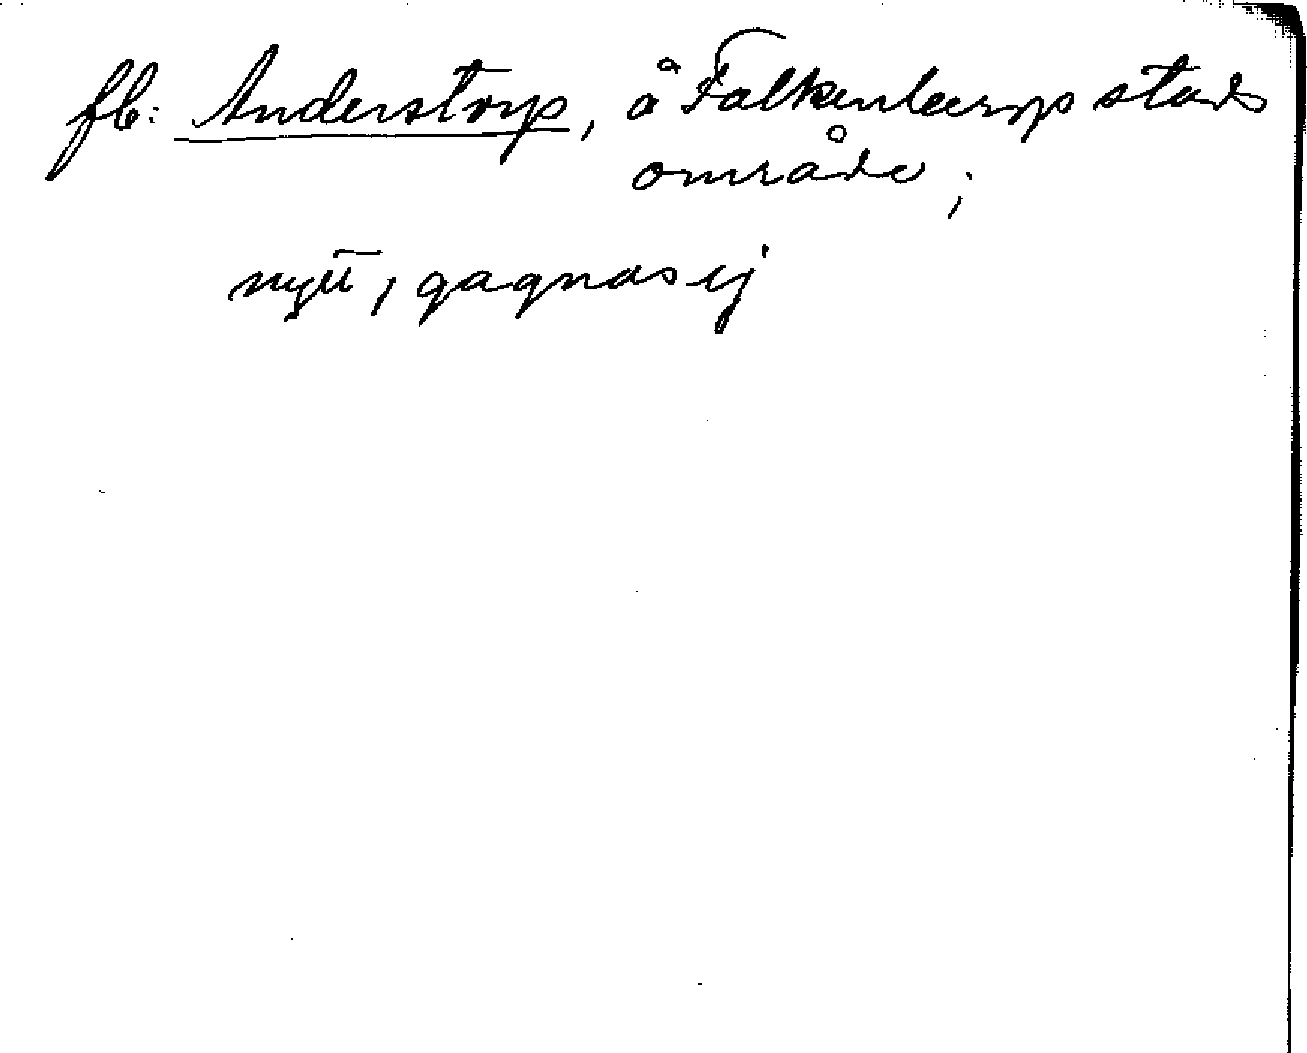 fb: Anderstorp, å Falkenbergs stads
område;
nytt, gagnas ej